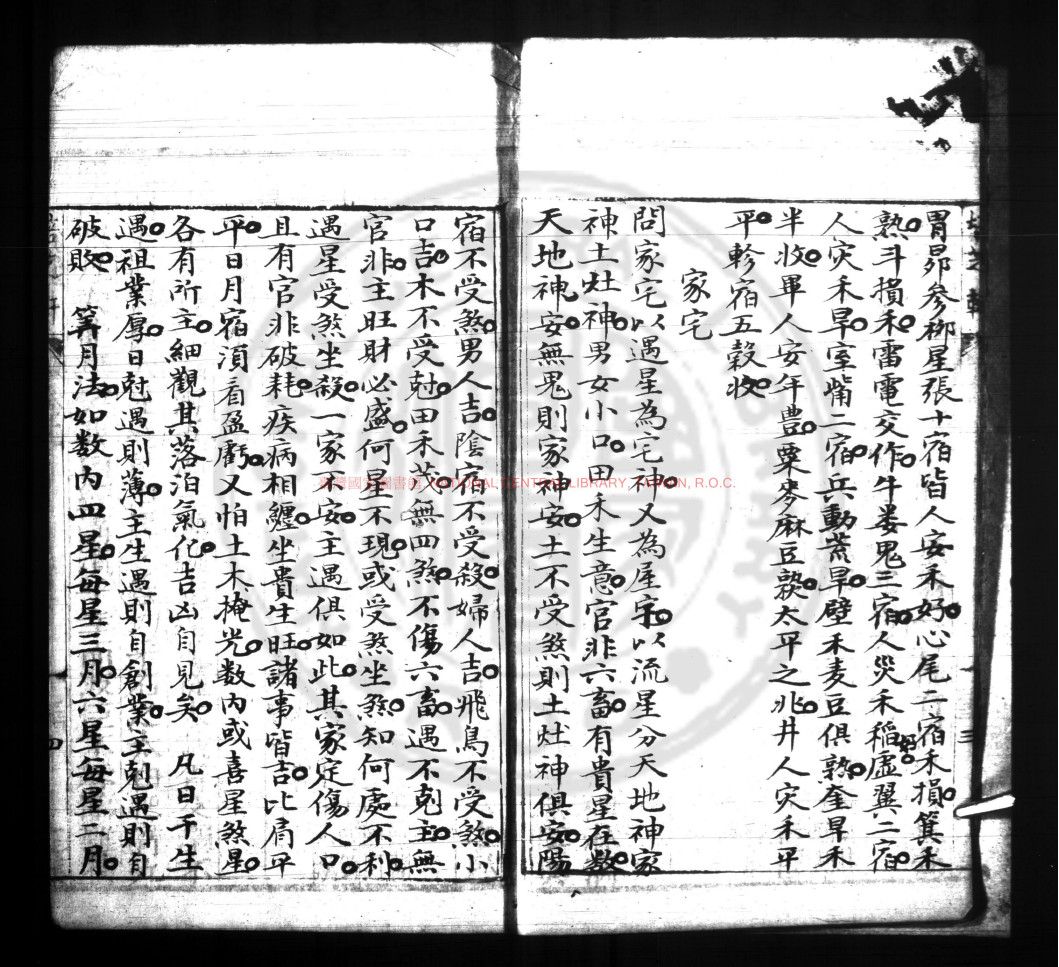 胃昴參柳星張十宿皆人安禾好心尾二宿禾損箕禾
熟斗損禾雷電交作牛婁鬼三宿人災禾稻虛翼二宿
人灾禾旱室觜二宿兵動荒旱壁禾麦豆俱熟奎旱禾
半收畢人安年豊粟麥麻豆熟太平之兆井人灾禾平
平軫宿五穀收
家宅
問家宅以遇星為宅神又為屋宇以流星分天地神家
神土灶神男女小口田禾生意官非六畜有貴星在数
天地神安無鬼則家神安土不受煞則土灶神俱安陽
宿不受煞男人吉陰宿不受殺婦人吉飛鳥不受煞小
口吉木不受尅田禾茂無四煞不傷六畜遇不剋主無
官非主旺財必盛何星不現或受煞坐煞知何處不利
遇星受煞坐殺一家不安主遇俱如此其家定傷人口
且有官非破耗疾病相纏坐貴生旺諸事皆吉比肩平
平日月宿湏看盈虧又怕土木掩光数內或喜星煞星
各有所主細觀其落泊氣化吉凶自見矣 凡日干生
遇祖業厚日尅遇則薄主生遇則自創業主剋遇則自
破敗 筭月法如数內四星每星三月六星每星二月
臺灣國家圖書館 NATIONAL CENTRAL LIBRARY, TAIWAN, R.O.C.